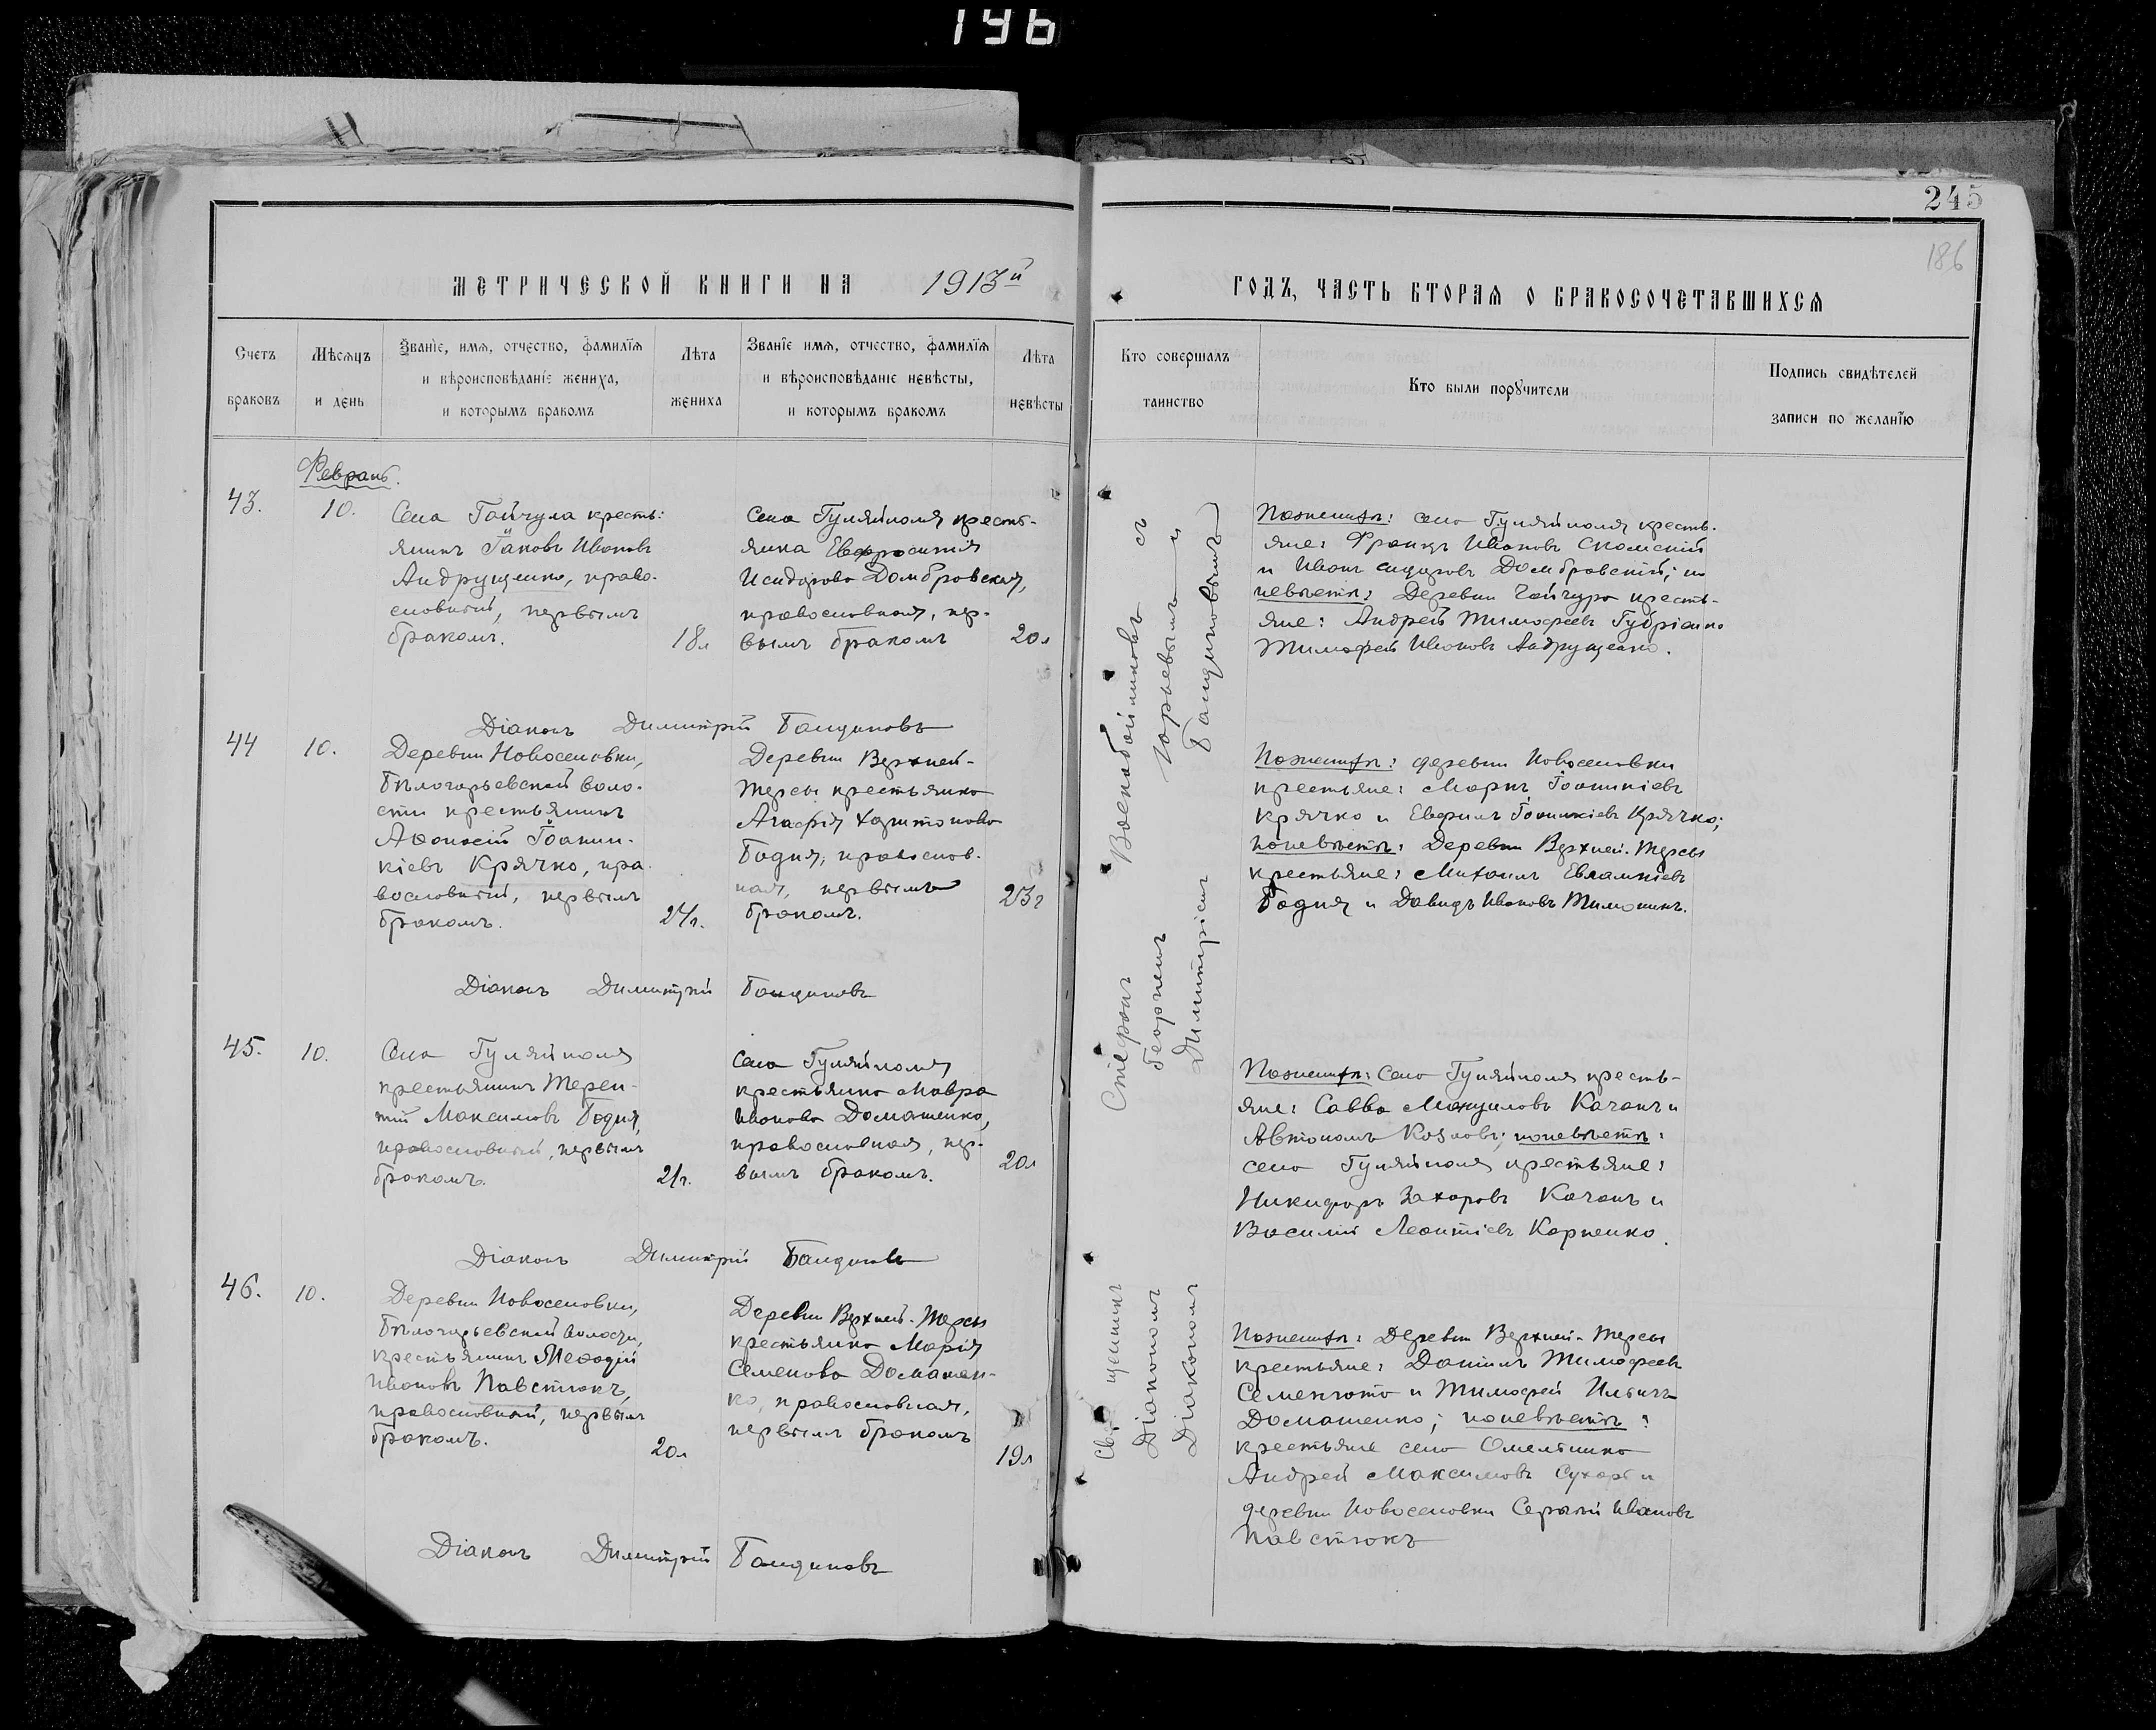 196
245
186
МЕТРИЧЕСКОЙ КНИГИ НА 1913й
ГОДЪ, ЧАСТЬ ВТОРАЯ О БРАКОСОЧЕТАВШИХСЯ
Счетъ
браковъ
Мѣсяцъ
и день
Званіе, имя, отчество, фамилія
и вѣроисповѣданіе жениха,
и которымъ бракомъ
Лѣта
жениха
Званіе имя, отчество, фамилія
и вѣроисповѣданіе невѣсты,
и которымъ бракомъ
Лѣта
невѣсты
Кто совершалъ
таинство
Кто были поручители
Подпись свидѣтелей
записи по желанію
Февраль.
43.
10.
Села Гайчула кресть:
янинъ Іаковъ Ивановъ
Андрущенко, право-
славный, первымъ
бракомъ.
18л
Села Гуляйполя кресть-
янка Евфросинія
Исидорова Домбровская,
православная, пер-
вымъ бракомъ
20л
По женихѣ: села Гуляйполя кресть-
яне: Францъ Ивановъ
и Иванъ Сидоровъ Домбровскій; по
невѣстѣ: Деревни Гайчура кресть-
яне: Андрей Тимофеевъ
Тимофей Ивановъ Андрущенко.
Діаконъ Димитрій Бандиковъ
44
10.
Деревни Новоселовки,
Бѣлогорьевской воло-
сти крестьянинъ
Аѳанасій Іоанни-
кіевъ Крячко, пра-
вославный, первымъ
бракомъ.
24г.
Деревни Верхней-
Терсы крестьянка
Агафія Харитонова
Бодня, православ-
ная, первымъ
бракомъ.
23г
По женихѣ: деревни Новоселовки
крестьяне: Маркъ Іоанникіевъ
Крячко и Іоанникіевъ Крячко;
по невѣстѣ: Деревни Верхней-Терсы
крестьяне: Михаилъ Евлампіевъ
Бодня и Давидъ Ивановъ Тимошикъ.
Діаконъ Димитрій Бандиковъ
45.
10.
Села Гуляйполя
крестьянинъ Терен-
тій Максимовъ Бодня,
православный, первымъ
бракомъ.
21г.
Села Гуляйполя
крестьянка Мавра
Иванова Домашенко,
православная, пер-
вымъ бракомъ.
20л
По женихѣ: Села Гуляйполя кресть-
яне: Савва Качанъ и
Автономъ; по невѣстѣ:
села Гуляйполя крестьяне:
Никифоръ Захаровъ Качанъ и
Василій Леонтіевъ Карпенко.
Діаконъ Димитрій Бандиковъ
46.
10.
Деревни Новоселовки,
Бѣлогорьевской волости,
крестьянинъ Меѳодій
Ивановъ Павстюкъ,
православный, первымъ
бракомъ.
20л
Деревни Верхней-Терсы
крестьянка Марія
Семенова Домашен-
ко, православная,
первымъ бракомъ
19л
По женихѣ: Деревни Верхней-Терсы
крестьяне: Даніилъ Тимофеевъ
Семенюта и Тимофей Ильичъ
Домашенко; по невѣстѣ:
крестьяне села Омельника
Андрей Максимовъ и
деревни Новоселовки Сергѣй Ивановъ
Павстюкъ
Діаконъ Димитрій Бандиковъ
Священникъ Стефанъ Воскобойниковъ съ
Діакономъ Георгіемъ Юрьевымъ и
Діакономъ Димитріемъ Бандиковымъ